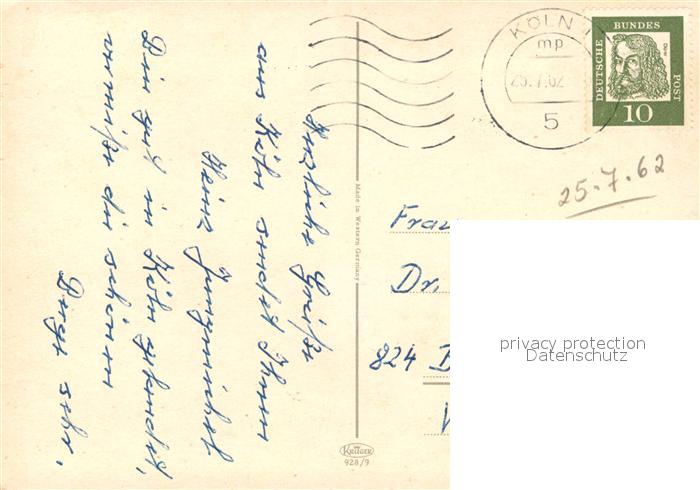 Herzliche Grüße
aus Köln sendet Ihnen
Heinz
Bin gut in Köln gelandet,
vermisse die schönen
Berge sehr.
Made in Western Germany
KRÜGER
928/9
KÖLN 1
mp
25.7.62
5
DEUTSCHE
BUNDES
POST
Dürer
10
25.7.62
Frau
Dr.
824 B
privacy protection
Datenschutz